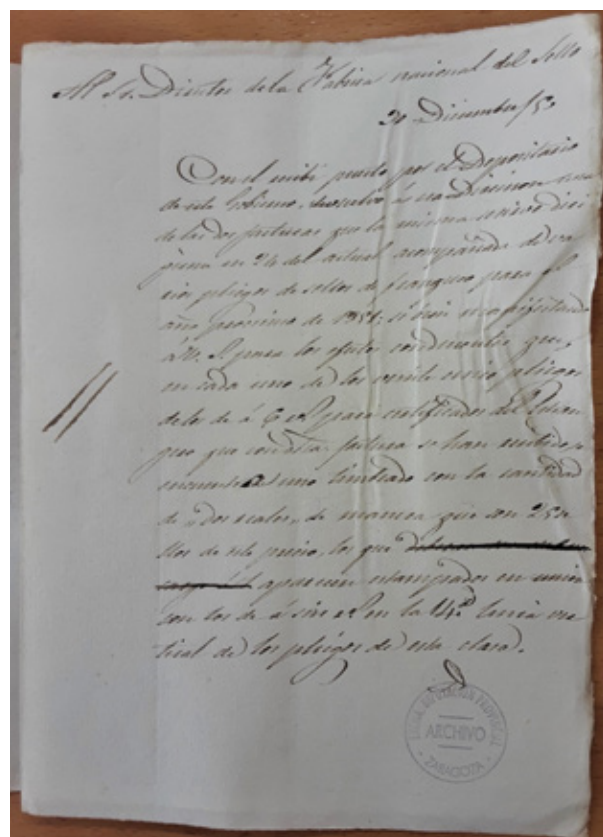 Al Sr. Director de la Fabrica nacional del Sello
30 Diciembre/50
Con el recibí puesto por el Depositario
de este Gobierno, devuelvo á esa Direccion una
de las dos facturas que la misma se sirvió diri
girme en 24 del actual acompañada de va
rios pliegos de sellos de franqueo para el
año proximo de 1851; si bien manifestando
á V. S. para los efectos conducentes que,
en cada uno de los veinte cinco pliegos
de los de á 6 rs para certificados del Fran
queo que con dha. factura se han recibido, se
encuentra uno timbrado con la cantidad
de "dos reales", de manera que son 25 se
llos de este precio, los que
aparecen estampados en union
con los de á seis rs en la 14ª linea ver
tical de los pliegos de esta clase.
EXCMA. DIPUTACION PROVINCIAL
ARCHIVO
ZARAGOZA